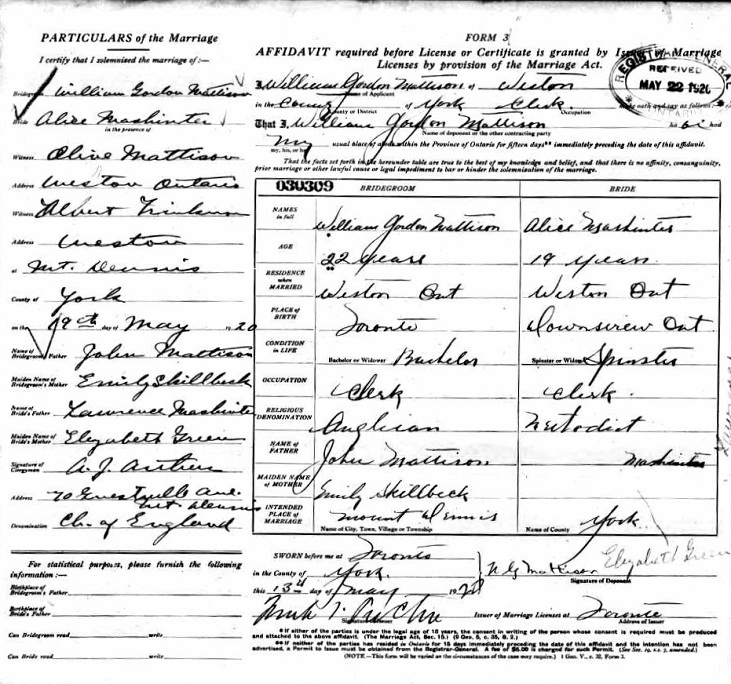 PARTICULARS of the Marriage
I certify that I solemnized the marriage of:—
Bridegroom William Gordon Mattison
Bride Alice Mashinter
in the presence of
Witness Olive Mattison
Address Weston Ontario
Witness Albert
Address Weston
at Mt. Dennis
County of York
on the 19th day of May 1920
Name of Bridegroom's Father John Mattison
Maiden Name of Bridegroom's Mother Emily Skillbeck
Name of Bride's Father Lawrence Mashinter
Maiden Name of Bride's Mother Elizabeth Green
Signature of Clergyman A. J.
Address 70 Ave.
Mt Dennis
Denomination Ch. of England
For statistical purposes, please furnish the following
information:—
Birthplace of Bridegroom's Father
Birthplace of Bride's Father
Can Bridegroom read write
Can Bride read write
FORM 3
AFFIDAVIT required before License or Certificate is granted by Issuer of Marriage
Licenses by provision of the Marriage Act.
REGISTRAR GENERAL
RECEIVED
MAY 22 1920
ONTARIO
I, William Gordon Mattison of Weston
Name of Applicant
in the County of York Clerk
County or District Occupation
make oath and say as follows:
That I, William Gordon Mattison
Name of deponent or the other contracting party
my usual place of abode within the Province of Ontario for fifteen days** immediately preceding the date of this affidavit.
my, his, or her
That the facts set forth in the hereunder table are true to the best of my knowledge and belief, and that there is no affinity, consanguinity,
prior marriage or other lawful cause or legal impediment to bar or hinder the solemnization of the marriage.
030309 BRIDEGROOM BRIDE
NAMES in full William Gordon Mattison Alice Mashinter
AGE 22 years 19 years
RESIDENCE when MARRIED Weston Ont Weston Ont
PLACE OF BIRTH Toronto Downsview Ont
CONDITION IN LIFE Bachelor or Widower Bachelor Spinster or Widow Spinster
OCCUPATION Clerk Clerk
RELIGIOUS DENOMINATION Anglican Methodist
NAME OF FATHER John Mattison Mashinter
MAIDEN NAME OF MOTHER Emily Skillbeck
INTENDED PLACE OF MARRIAGE Mount Dennis York
Name of City, Town, Village or Township Name of County
Elizabeth Green
SWORN before me at Toronto
in the County of York
this 13th day of May 1920
W G Mattison
Signature of Deponent
Signature of Issuer
Issuer of Marriage Licenses at Toronto
Address of Issuer
*If either of the parties is under the legal age of 18 years, the consent in writing of the person whose consent is required must be produced
and attached to the above affidavit. (The Marriage Act, Sec. 15.) (9 Geo. 5, c. 35, S. 2.)
**If neither of the parties has resided in Ontario for 15 days immediately preceding the date of this affidavit and the intention has not been
advertised, a Permit to Issue must be obtained from the Registrar-General. A fee of $5.00 is charged for such Permit. (See Sec. 19, s.s. 3, amended.)
(NOTE.—This form will be varied as the circumstances of the case may require.) 1 Geo. V., c. 32, Form 3.